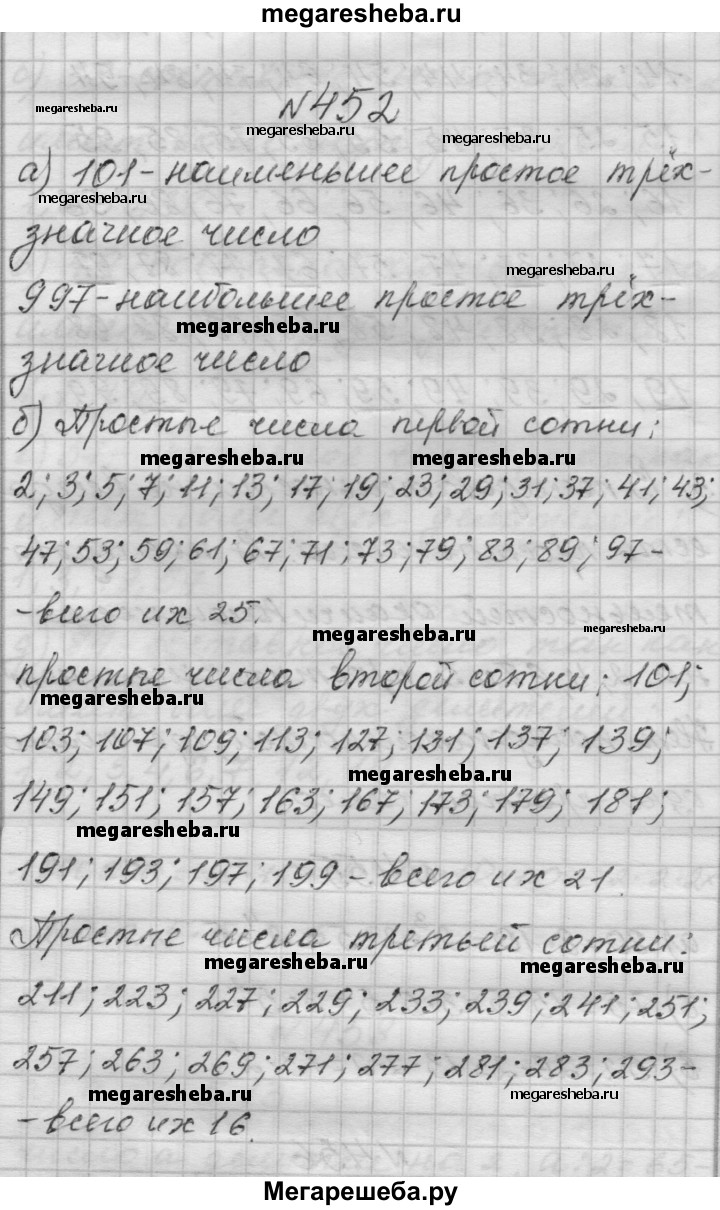 megaresheba.ru
№452
megaresheba.ru
megaresheba.ru
megaresheba.ru
а) 101 - наименьшее простое трёх-
megaresheba.ru
значное число
megaresheba.ru
997 - наибольшее простое трёх-
megaresheba.ru
значное число
б) Простые числа первой сотни:
megaresheba.ru
megaresheba.ru
2; 3; 5; 7; 11; 13; 17; 19; 23; 29; 31; 37; 41; 43;
47; 53; 59; 61; 67; 71; 73; 79; 83; 89; 97 -
- всего их 25.
megaresheba.ru
megaresheba.ru
простые числа второй сотни: 101;
megaresheba.ru
103; 107; 109; 113; 127; 131; 137; 139;
megaresheba.ru
149; 151; 157; 163; 167; 173; 179; 181;
megaresheba.ru
191; 193; 197; 199 - всего их 21.
Простые числа третьей сотни:
megaresheba.ru
megaresheba.ru
211; 223; 227; 229; 233; 239; 241; 251;
257; 263; 269; 271; 277; 281; 283; 293 -
megaresheba.ru
megaresheba.ru
- всего их 16.
Мегарешеба.ру